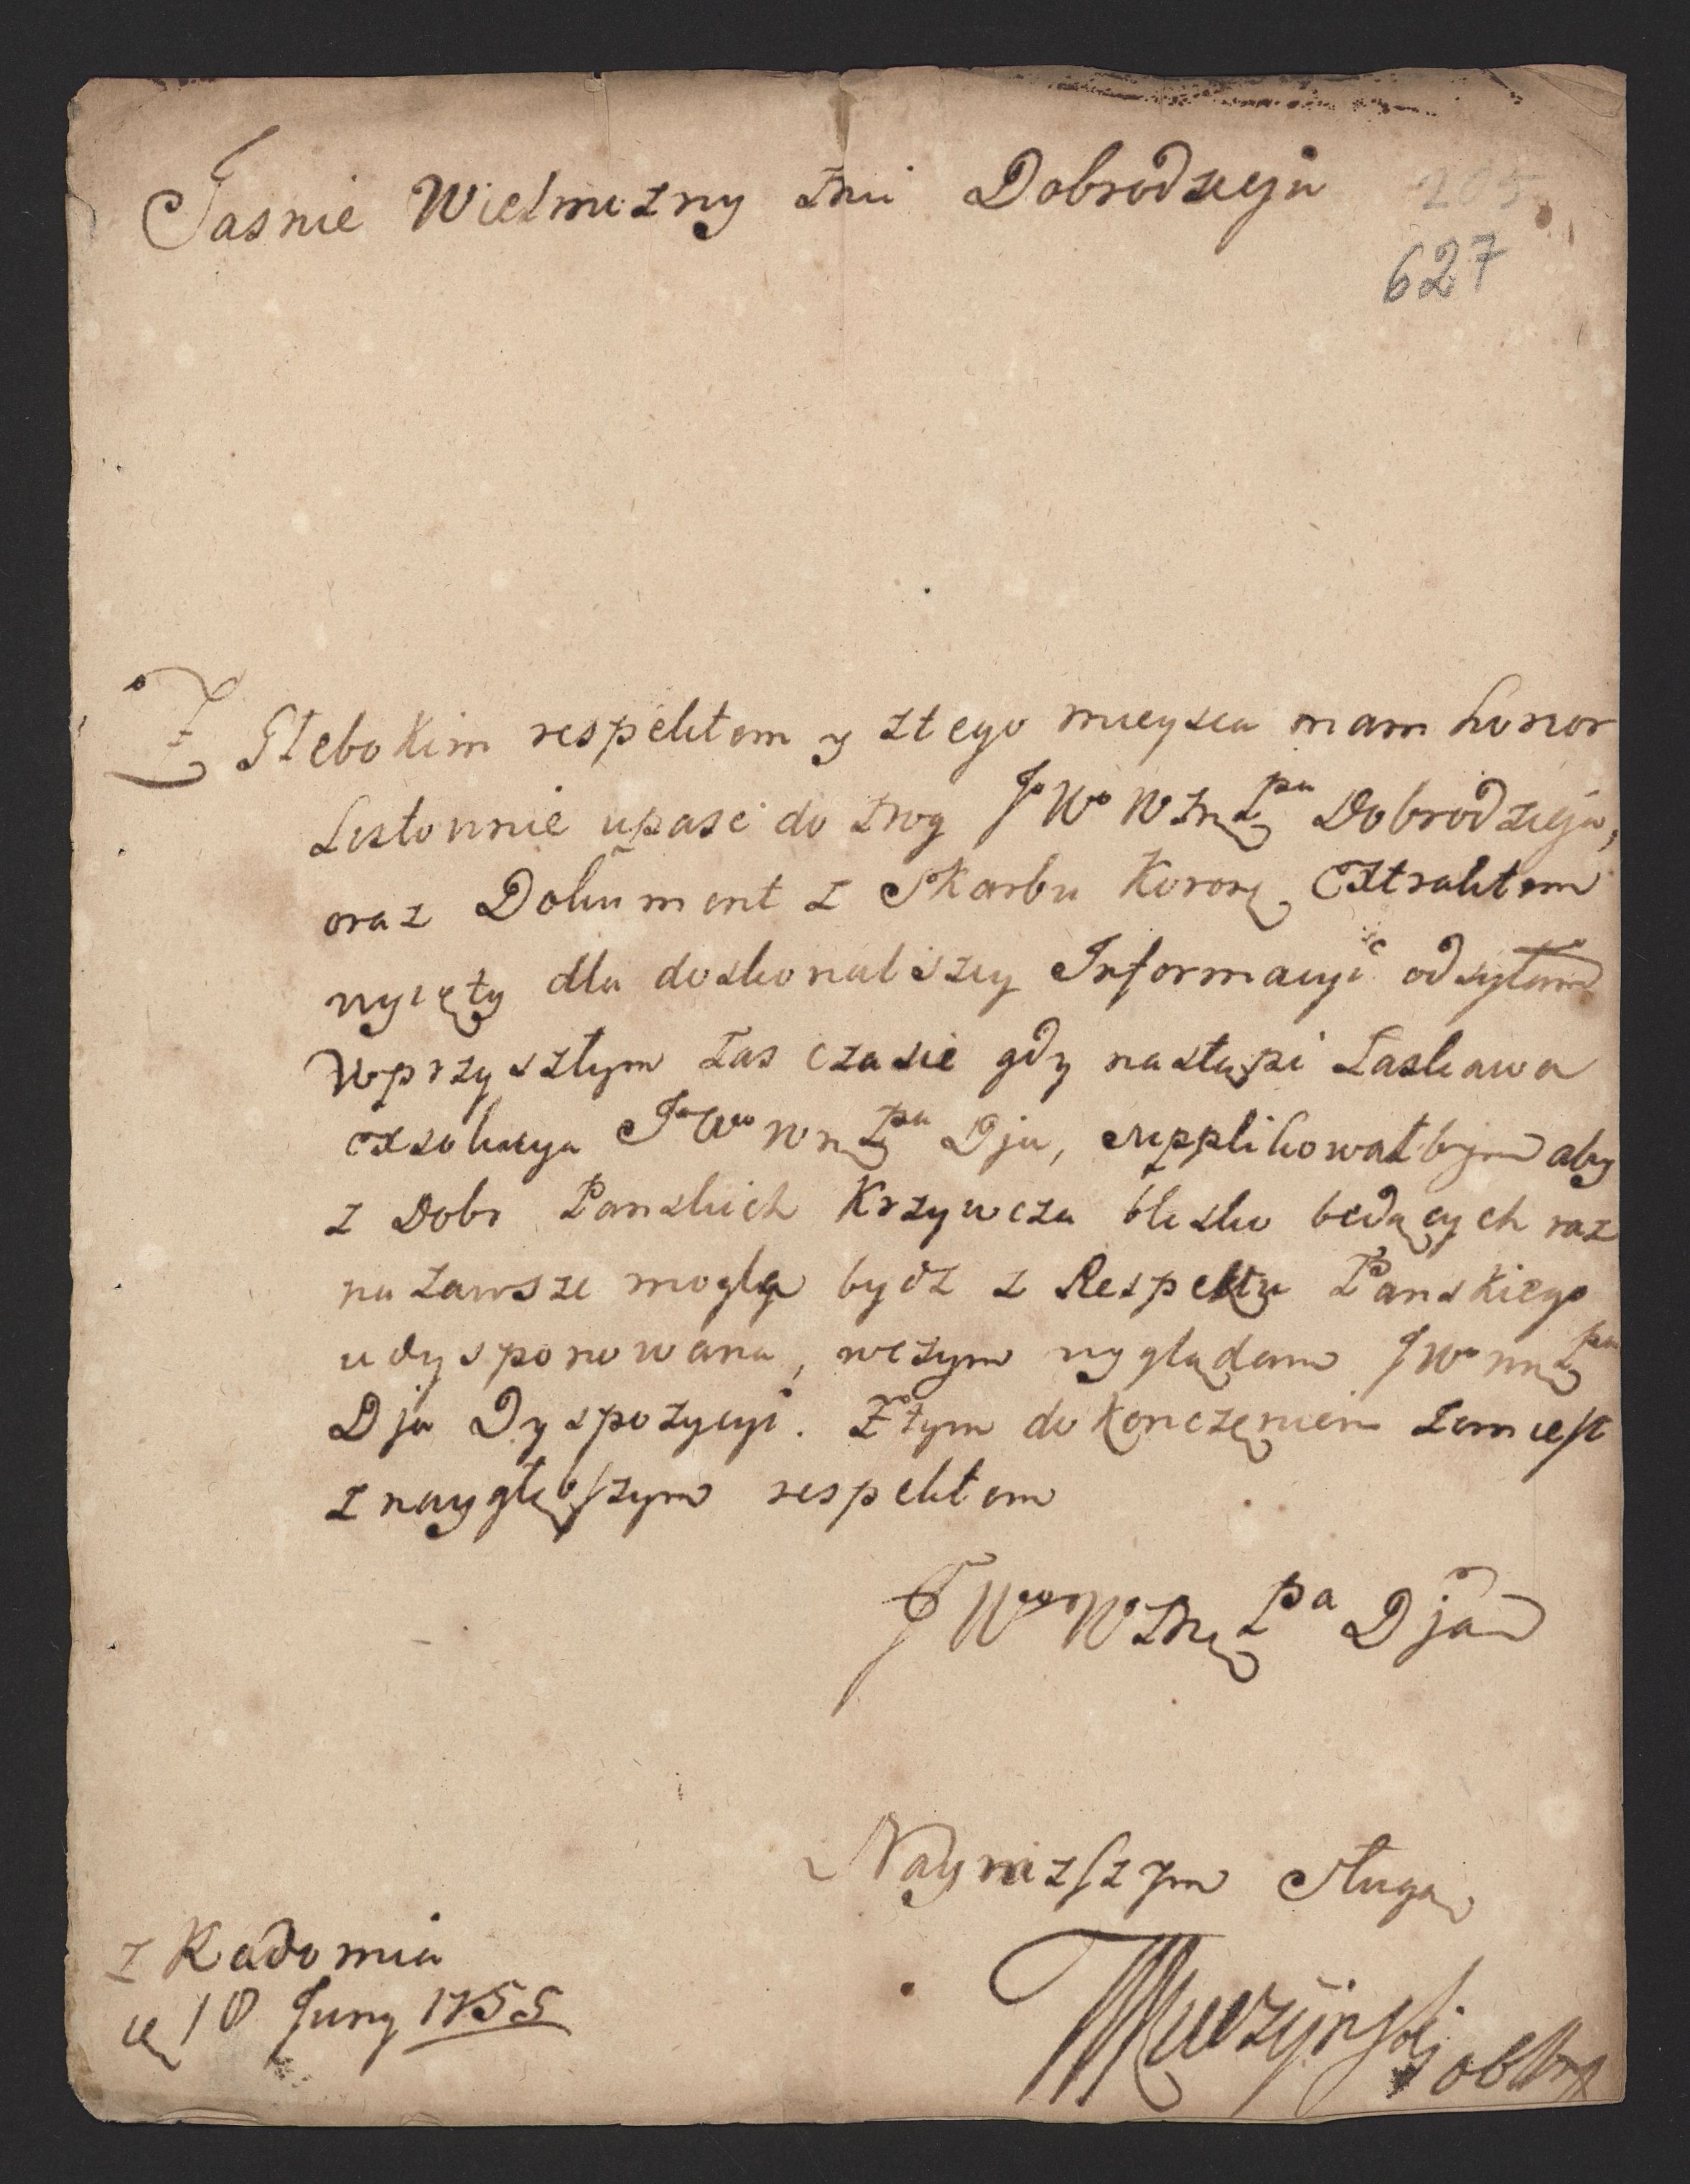 Jasnie Wielmozny Mci Dobrodzieju
205
627
Z Głebokim respektem y ztego mieysca mam honor
Listownie upasc do nog JWo WMę Pa Dobrodzieja,
oraz Dokument z Skarbu Koronę Extraktem
wyięty dla doskonalszey Informacyi odsyłam
Wprzyszłym zas czasie gdy nastąpi Łaskawa
JWo WMę Pa Dja, supplikowałbym aby
z Dobr Panskich Krzywcza blisko będących raz
na zawsze mogła bydz z Respektu Panskiego
udysponowana, wczym wyglądam JWo WMę Pa
Dja Dyspozycyi. Ztym dokonczęniem zem iest
z naygłębszym respektem
JWo WMę Pa Dja
Nayniższym Sługą
z Radomia
10 Juny 1755